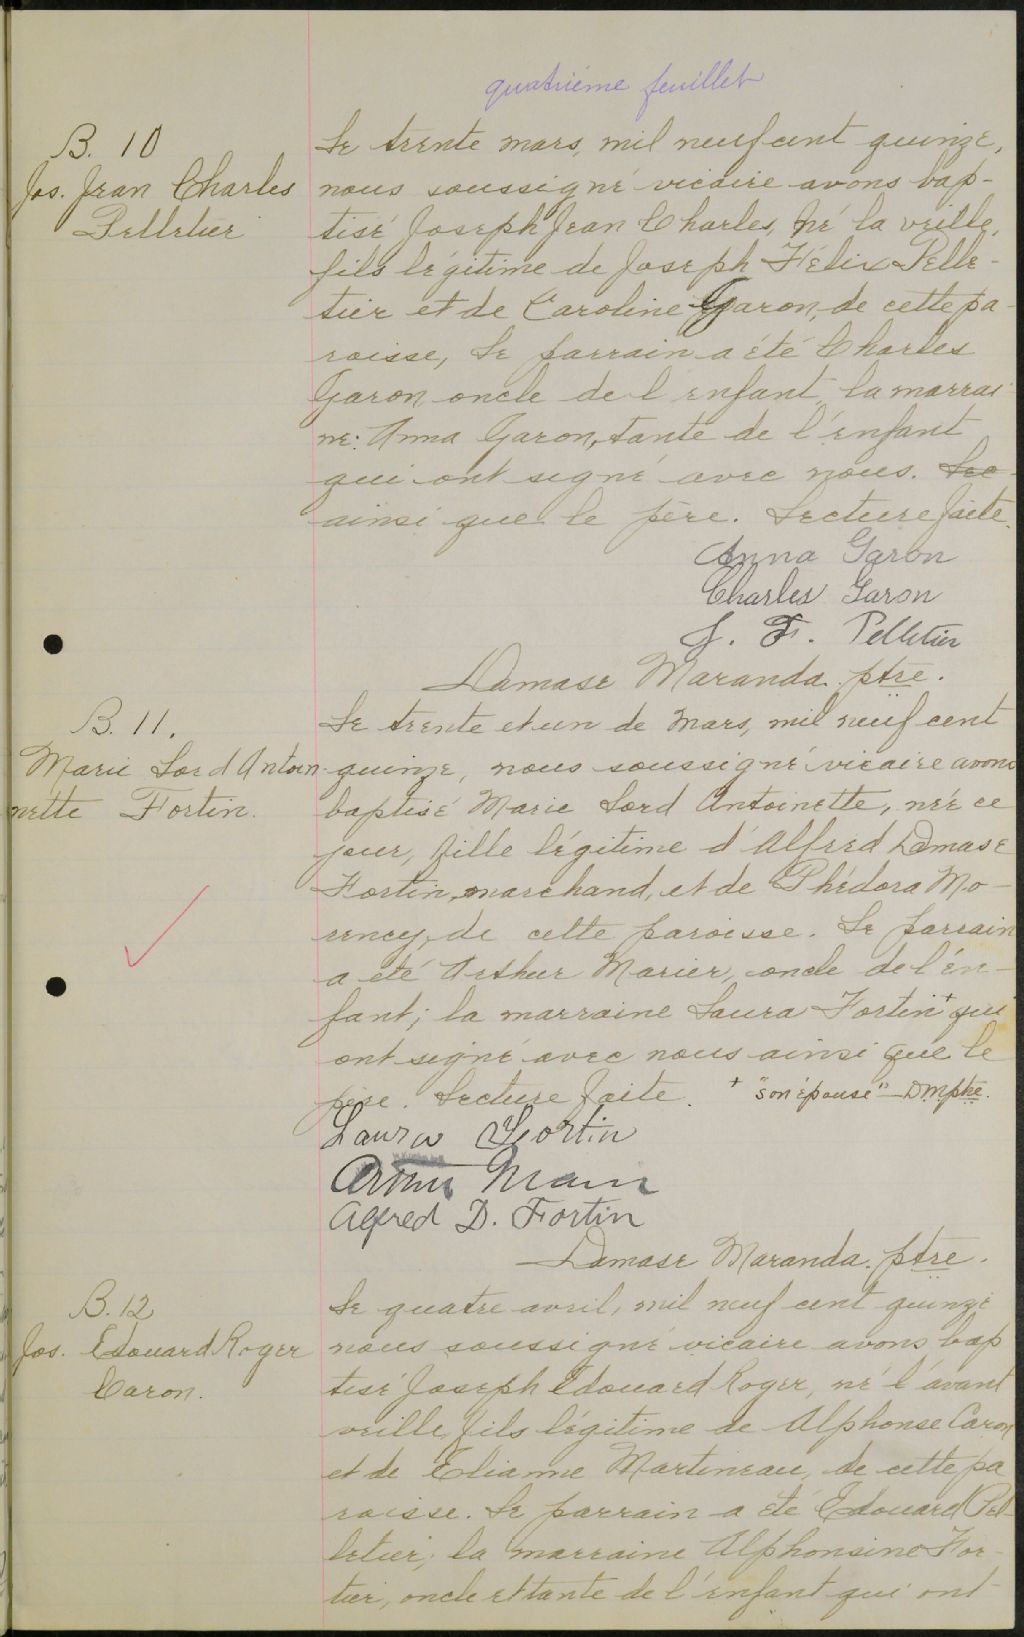 quatrième feuillet
B. 10
Jos. Jean Charles
Pelletier
Le trente mars, mil neuf cent quinze,
nous soussigné vicaire avons bap-
tisé Joseph Jean Charles, né la veille,
fils légitime de Joseph Félix Pelle-
tier et de Caroline Garon, de cette pa-
roisse, Le parrain a été Charles
Garon oncle de l'enfant, la marrai-
ne: Anna Garon, tante de l'enfant
qui ont signé avec nous. Lec
ainsi que le père. Lecture faite.
Anna Garon
Charles Garon
J. F. Pelletier
Damase Maranda ptre.
B. 11.
Marie Lord Antoin-
nette Fortin.
Le trente et un de Mars, mil neuf cent
quinze, nous soussigné vicaire avons
baptisé Marie Lord Antoinette, née ce
jour, fille légitime d'Alfred Damase
Fortin, marchand, et de Phédora Mo-
rency, de cette paroisse. Le parrain
a été Arthur Marier, oncle de l'en-
fant; la marraine Laura Fortin + qui
ont signé avec nous ainsi que le
père. Lecture faite. + "son épouse" – DMptre.
Laura Fortin
Alfred D. Fortin
Damase Maranda. ptre.
B. 12
Jos. Edouard Roger
Caron.
Le quatre avril, mil neuf cent quinze
nous soussigné vicaire avons bap
tisé Joseph Edouard Roger, né l'avant
veille, fils légitime de Alphonse Caron
et de Elianne Martineau, de cette pa
roisse. Le parrain a été Edouard Pel-
letier; la marraine Alphonsine For-
tier, oncle et tante de l'enfant qui ont